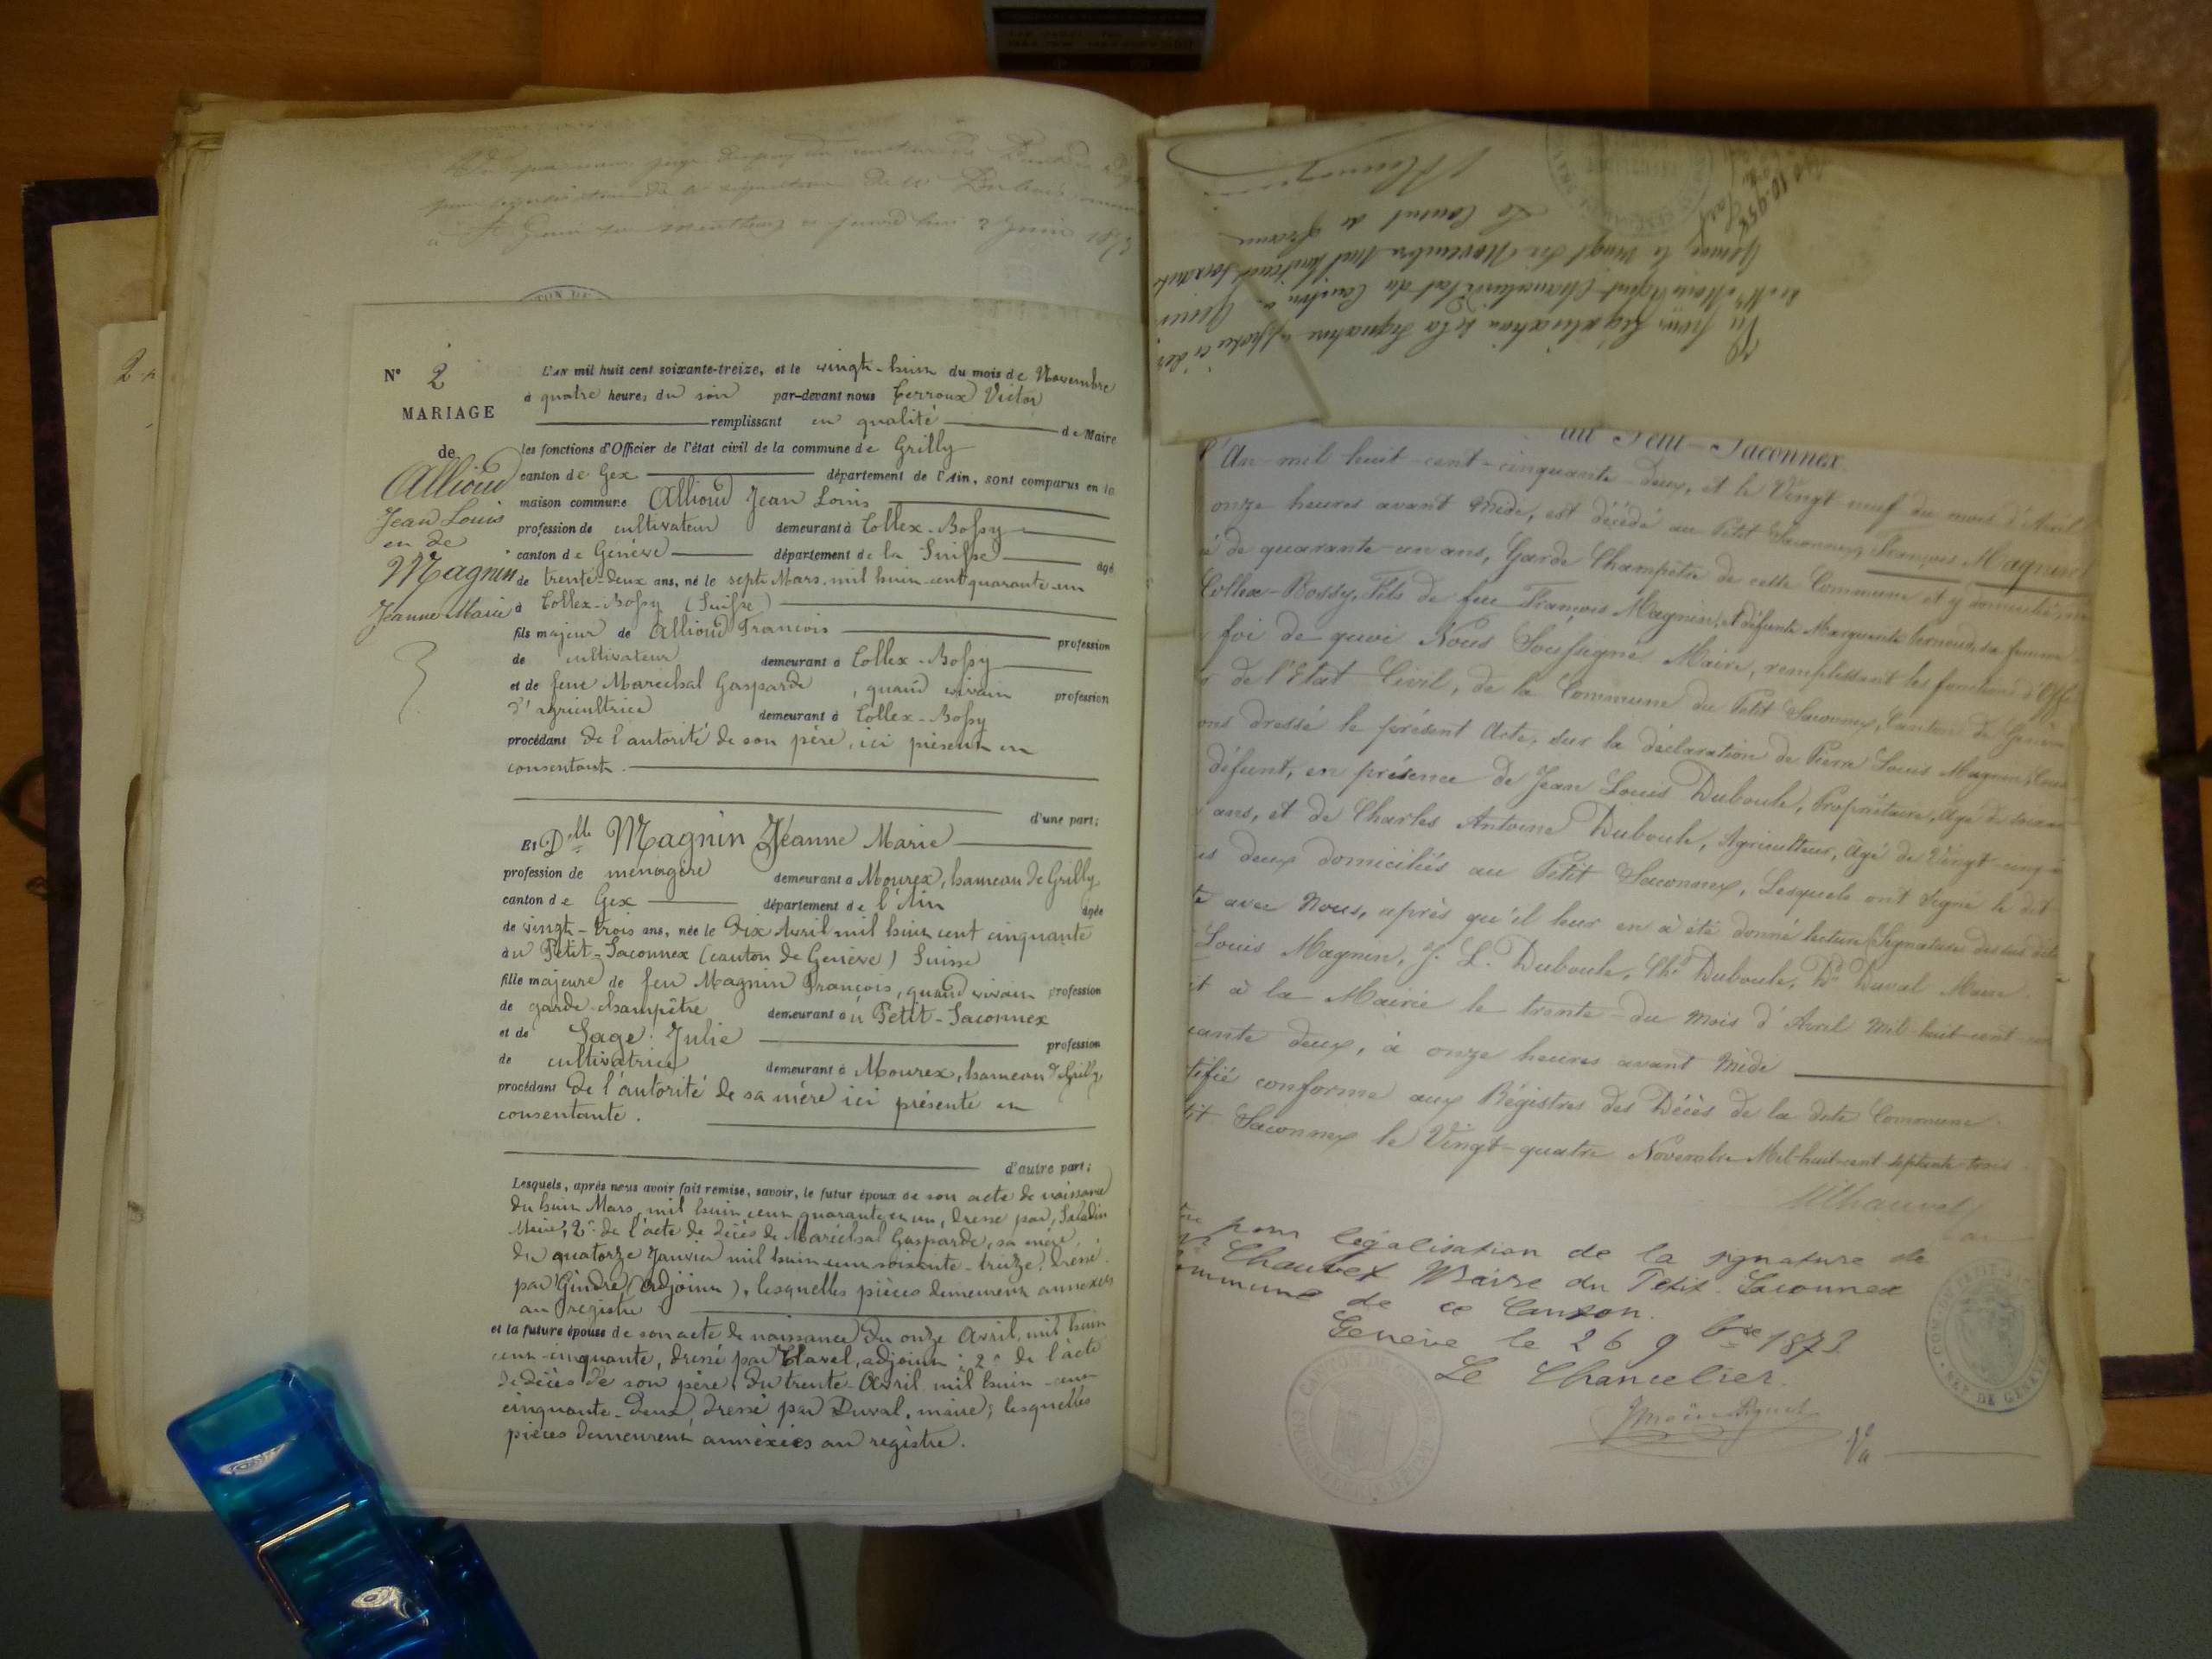 N° 2
MARIAGE
de
Allioud
Jean Louis
et de
Magnin
Jeanne Marie
L'an mil huit cent soixante-treize, et le vingt-huit du mois de Novembre
à quatre heures du soir par-devant nous Terroux Victor
remplissant en qualité de Maire
les fonctions d'Officier de l'état civil de la commune de Grilly
canton de Gex département de l'Ain, sont comparus en la
maison commune Allioud Jean Louis
profession de cultivateur demeurant à Collex-Bossy
canton de Genève département de la Suisse âgé
de trente-deux ans, né le sept Mars mil huit cent quarante-un
à Collex-Bossy (Suisse)
fils majeur de Allioud François profession
de cultivateur demeurant à Collex-Bossy
et de feue Maréchal Gasparde, quand vivait profession
d'agricultrice demeurant à Collex-Bossy
procédant de l'autorité de son père, ici présent et
consentant.
d'une part;
Et Dlle Magnin Jeanne Marie
profession de ménagère demeurant à Mourex, hameau de Grilly
canton de Gex département de l'Ain âgée
de vingt-trois ans, née le dix Avril mil huit cent cinquante
au Petit-Saconnex (canton de Genève) Suisse
fille majeure de feu Magnin François, quand vivait profession
de garde-champêtre demeurant au Petit-Saconnex
et de Sage Julie profession
de cultivatrice demeurant à Mourex, hameau de Grilly,
procédant de l'autorité de sa mère ici présente et
consentante.
d'autre part;
Lesquels, après nous avoir fait remise, savoir, le futur époux de son acte de naissance
du huit Mars, mil huit cent quarante et un, dressé par Saladin
Maire; 2° de l'acte de décès de Maréchal Gasparde, sa mère,
du quatorze Janvier mil huit cent soixante-treize, dressé
par Gindre (adjoint), lesquelles pièces demeurent annexées
au registre
et la future épouse de son acte de naissance du onze Avril, mil huit
cent cinquante, dressé par Clavel, adjoint; 2° de l'acte
de décès de son père, du trente Avril mil huit cent
cinquante-deux, dressé par Duval, maire; lesquelles
pièces demeurent annexées au registre.
Vu pour légalisation de la signature apposée ci-des
de Mr Moïse Piguet Chancelier d'Etat du Canton de Genève
Genève, le vingt six Novembre mil huit cent soixante
Le Consul de France
au Petit-Saconnex
l'An mil huit-cent-cinquante-deux, et le Vingt-neuf du mois d'Avril
onze heures avant Midi, est décédé au Petit Saconnex, François Magnin
é de quarante-un ans, Garde Champêtre de cette Commune et y domicilié,
Collex-Bossy, Fils de feu François Magnin, et défunte Marguerite sa femme
foi de quoi Nous Soussigné Maire, remplissant les fonctions d'Offi
de l'Etat Civil, de la Commune du Petit Saconnex, Canton de Genève
ons dressé le présent Acte, sur la déclaration de Pierre Louis Magnin,
défunt, en présence de Jean Louis Duboule, Propriétaire, âgé de
ans, et de Charles Antoine Duboule, Agriculteur, âgé de Vingt-cinq
us deux domiciliés au Petit Saconnex, Lesquels ont signé le dit
te avec Nous, après qu'il leur en a été donné lecture (Signatures
Louis Magnin, J. L. Duboule, Chs Duboule, Dd Duval Maire.
it à la Mairie le trente du mois d'Avril Mil-huit-cent
uante deux, à onze heures avant Midi
tifié conforme aux Régistres des Décès de la dite Commune
tit Saconnex le Vingt-quatre Novembre Mil-huit-cent-septante trois
pour légalisation de la signature de
Chauvet Maire du Petit-Saconnex
ommune de ce Canton.
Genève le 26 9bre 1873.
Le Chancelier.